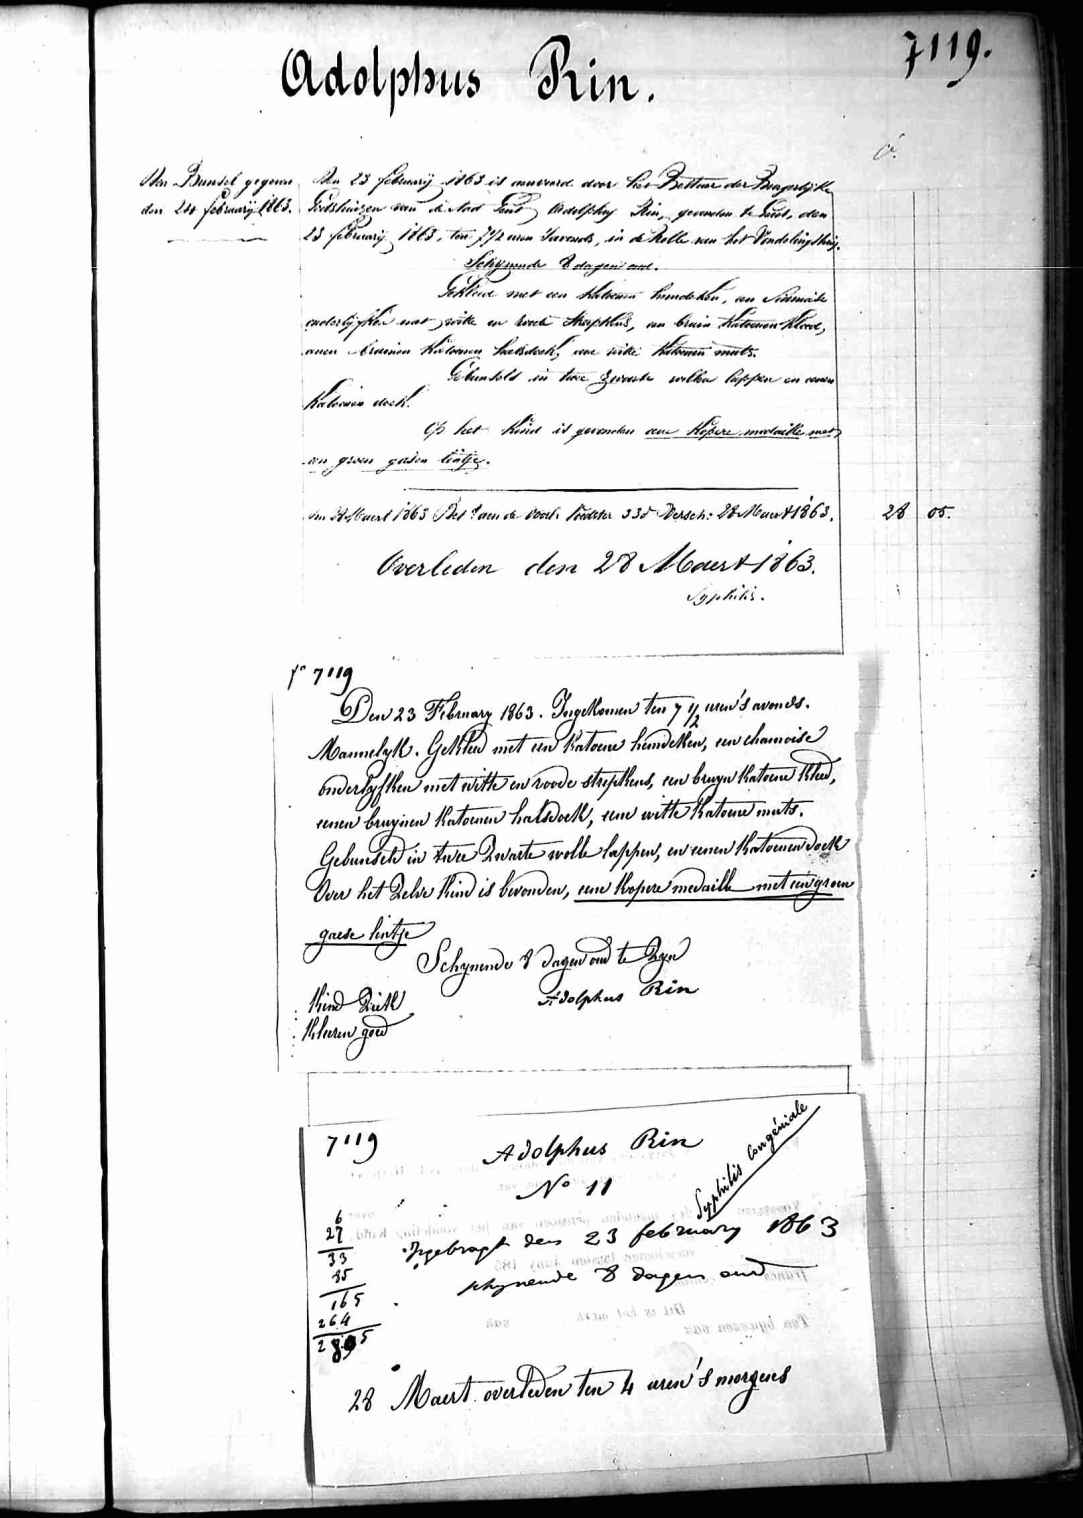 7119.
Adolphus Rin.
Van Bundel gegeven
den 24 february 1863.
Den 23 februarij 1863 is aanveerd door het Bestuur der Burgerlijke
Godshuizen van de stad Gent, Adolphus Rin, gevonden te Gent, den
23 februarij 1863, ten 7 1/2 uren s'avonds, in de Rolle van het Vondelingshuis.
Schijnende 8 dagen oud.
Gekleed met een katoenen hemdeken, een
onderlijfken met witte en roode streepkens, een bruin katoenen kleed,
eenen bruinen katoenen halsdoek, eene witte katoenen muts.
Gebunseld in twee zwarte wollen lappen en eenen
katoenen doek.
Op het kind is gevonden eene kopere medaille met
een groen gasen lintje.
1863 33d Versch: 28 Maert 1863. 28 05.
Overleden den 28 Maert 1863.
Syphilis.
7119
Den 23 February 1863. Ingekomen ten 7 1/2 uren 's avonds.
Mannelyk. Gekleed met een katoene hemdeken, een chamoise
onderlyfken met witte en roode strepkens, een bruyn katoene kleed,
eenen bruynen katoenen halsdoek, eene witte katoene muts.
Gebunseld in twee zwarte wolle lappen, en eenen katoenen doek
Over het zelve kind is bevonden, eene kopere medaille met een groen
gaese lintje
Schynende 8 dagen oud te zyn
Adolphus Rin
Kind ziek
Kleeren goed
7119
Adolphus Rin
No 11
Syphilis Congéniale
6
27
33
85
165
264
2805
Ingebragt den 23 february 1863
schynende 8 dagen oud
28 Maert overleden ten 4 uren 's morgens